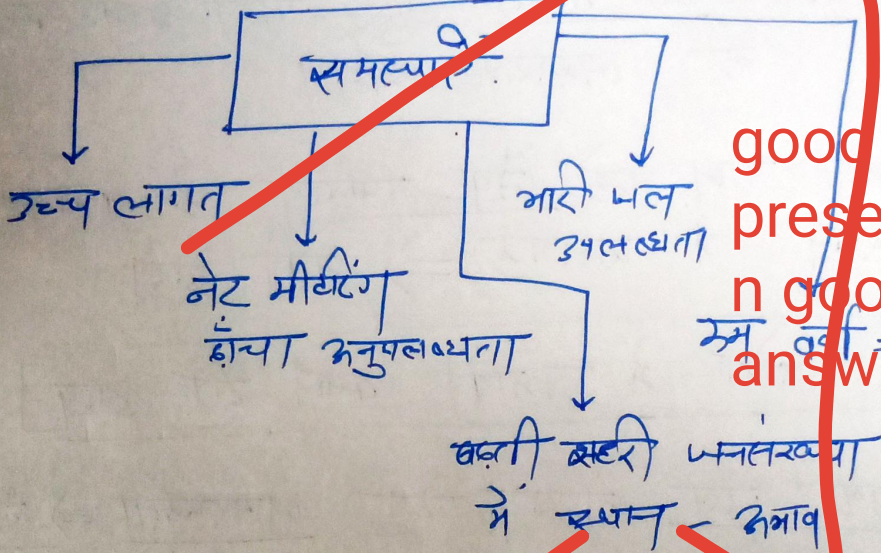 समस्याएँ
उच्च लागत
नेट मीटरिंग
ढाँचा अनुपलब्धता
भारी जल
उपलब्धता
कम वर्षा
बढ़ती शहरी जनसंख्या
में स्थान - अभाव
good
prese
n goo
answ